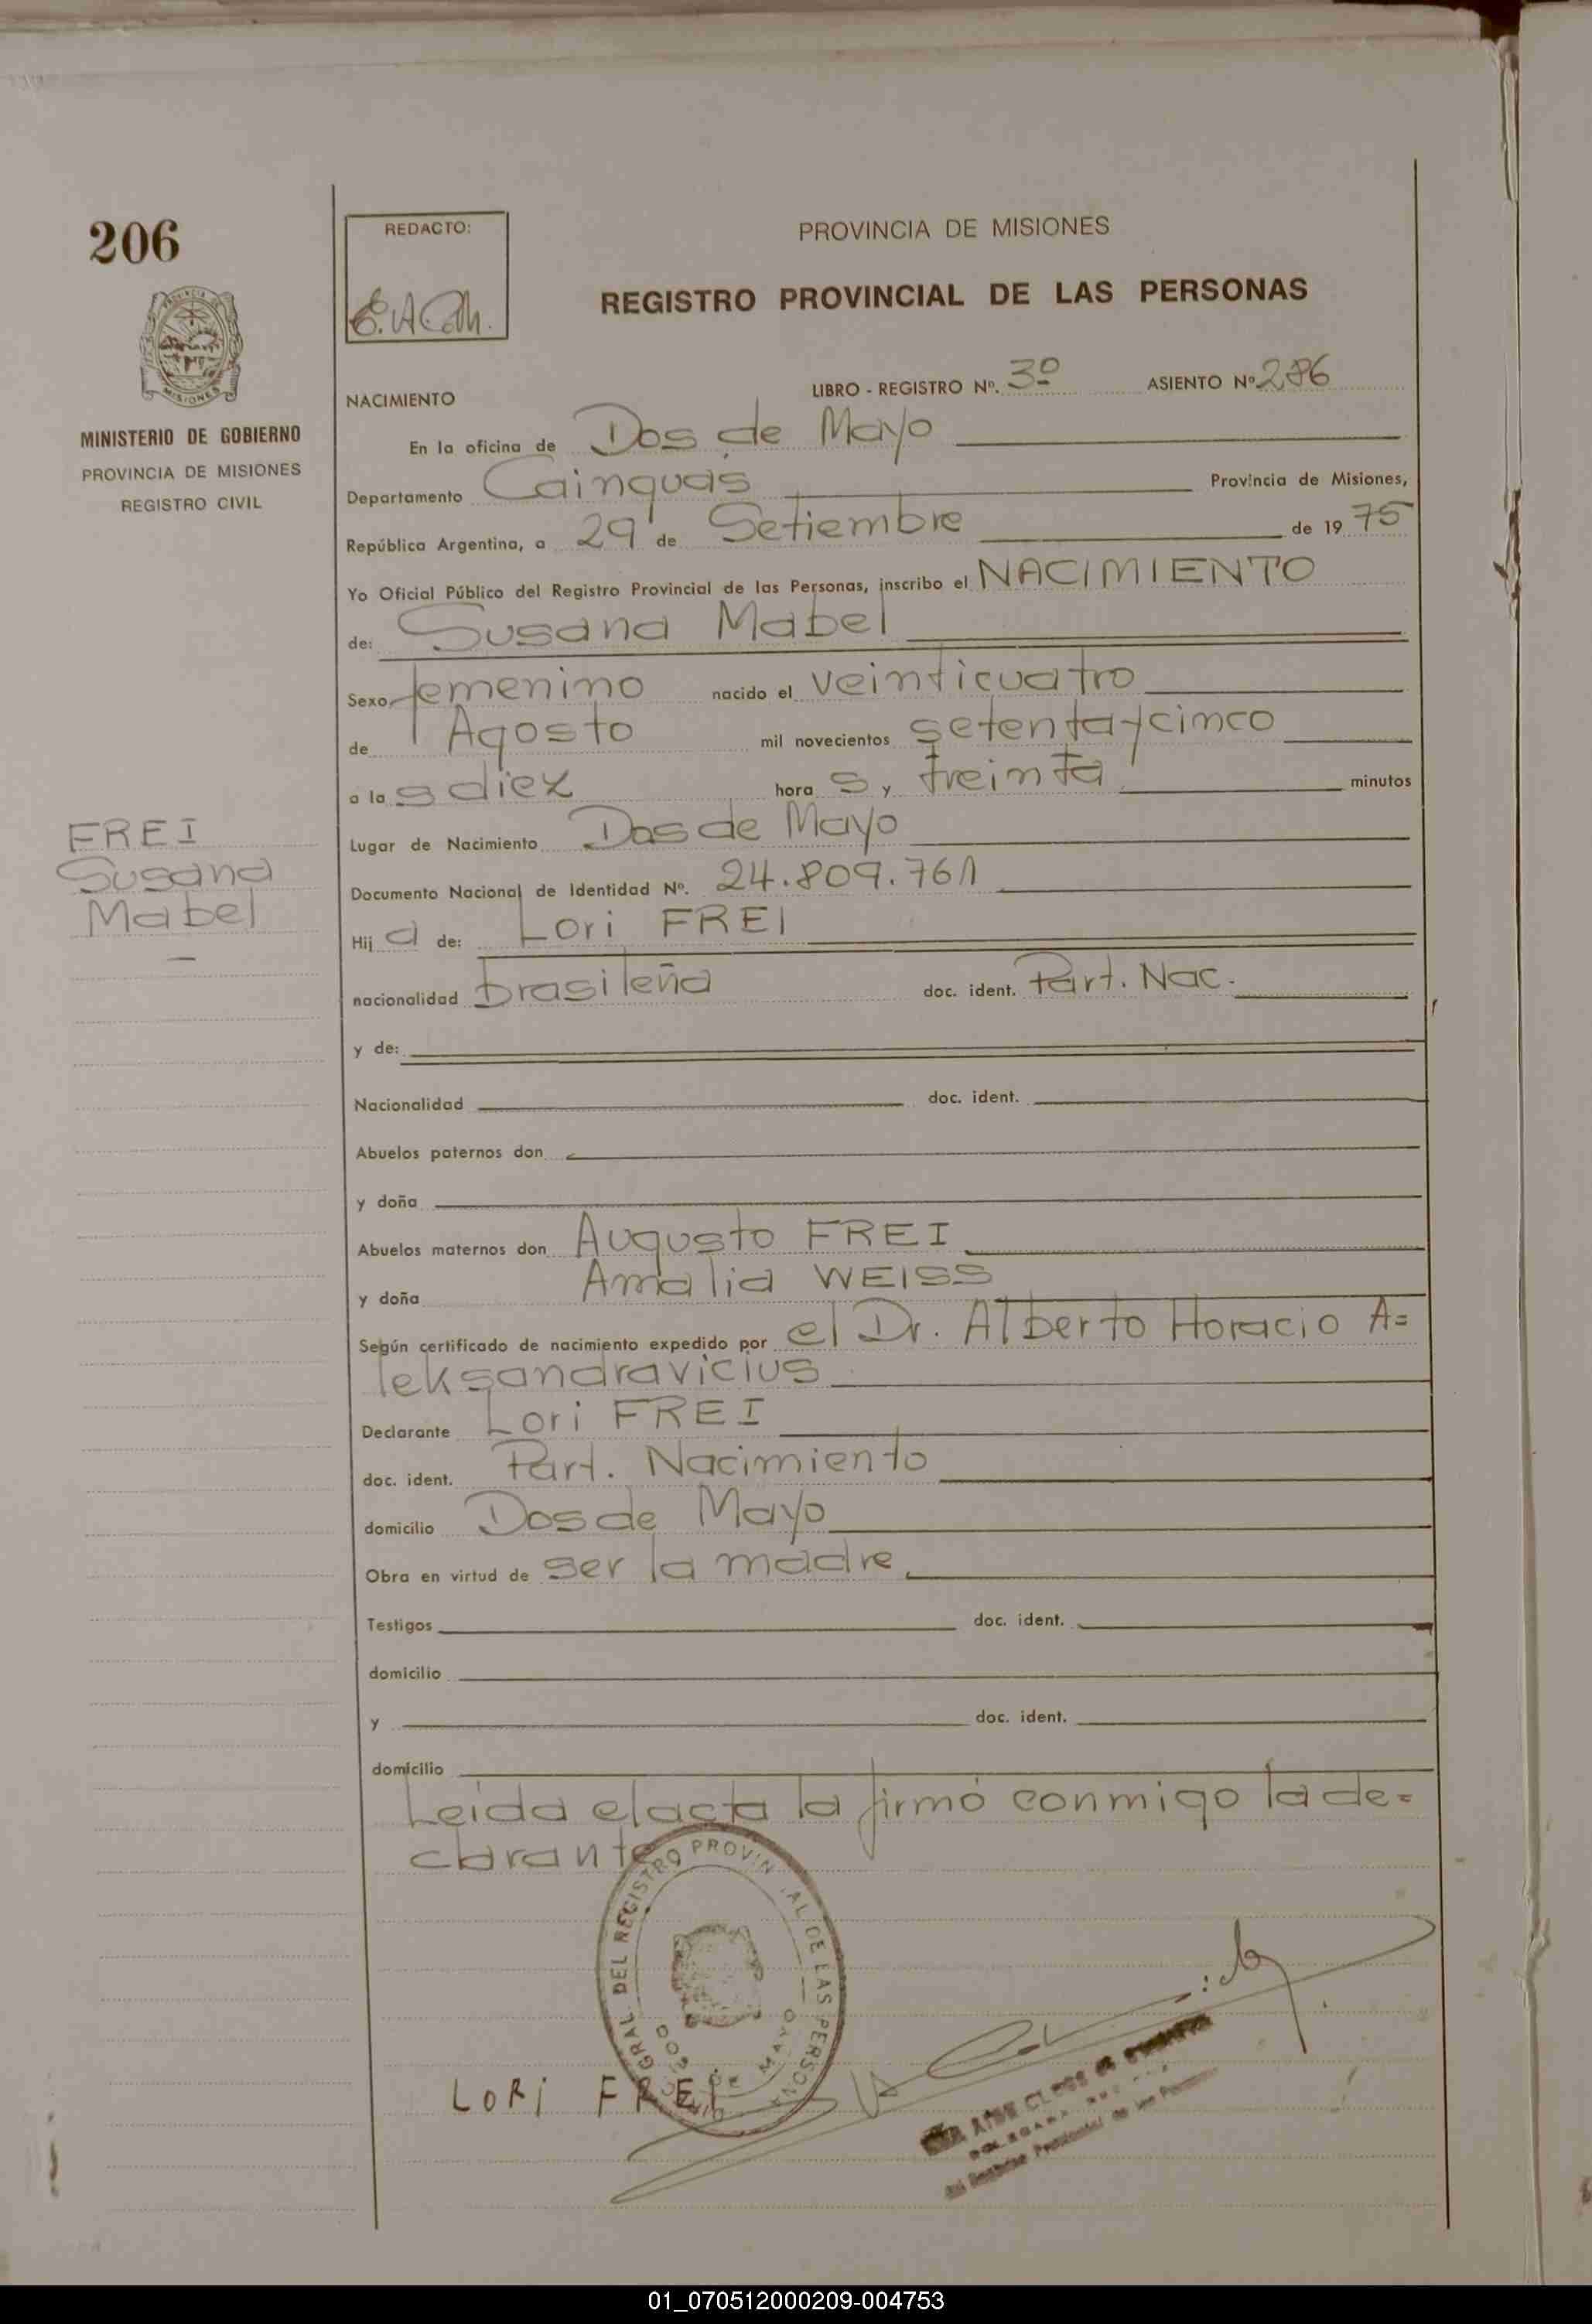 206
REDACTO:
E.A.C.M.
PROVINCIA DE MISIONES
REGISTRO PROVINCIAL DE LAS PERSONAS
MINISTERIO DE GOBIERNO
PROVINCIA DE MISIONES
REGISTRO CIVIL
NACIMIENTO LIBRO - REGISTRO Nº. 3º ASIENTO Nº 286
En la oficina de Dos de Mayo
Departamento Cainguás Provincia de Misiones,
República Argentina, a 29 de Setiembre de 19 75
Yo Oficial Público del Registro Provincial de las Personas, inscribo el NACIMIENTO
de: Susana Mabel
Sexo femenino nacido el veinticuatro
de Agosto mil novecientos setenta y cinco
a la s diez hora s y treinta minutos
FREI
Susana
Mabel
Lugar de Nacimiento Dos de Mayo
Documento Nacional de Identidad Nº. 24.809.761
Hij a de: Lori FREI
nacionalidad brasileña doc. ident. Part. Nac.
y de:
Nacionalidad doc. ident.
Abuelos paternos don
y doña
Abuelos maternos don Augusto FREI
y doña Amalia WEISS
Según certificado de nacimiento expedido por el Dr. Alberto Horacio A=
leksandravicius
Declarante Lori FREI
doc. ident. Part. Nacimiento
domicilio Dos de Mayo
Obra en virtud de ser la madre
Testigos doc. ident.
domicilio
y doc. ident.
domicilio
Leída el acta la firmó conmigo la de=
clarante
GRAL. DEL REGISTRO PROVIN AL DE LAS PERSONA
DOS DE MAYO
LORI FREI
del Registro Provincial de las Personas
01_070512000209-004753